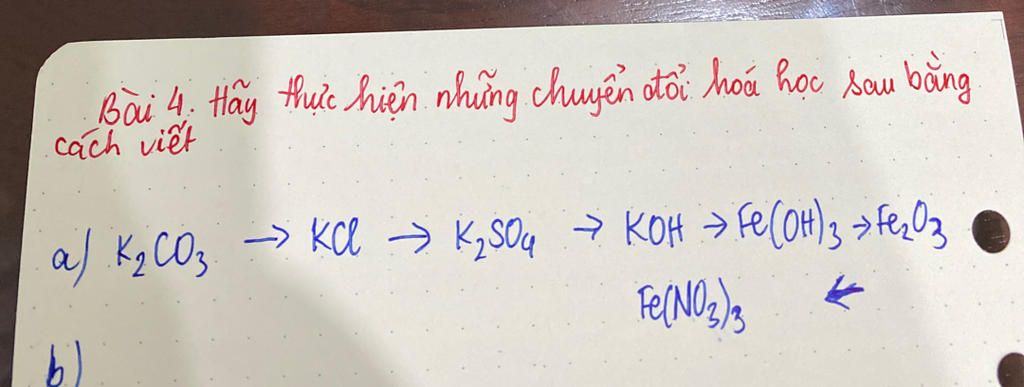 Bài 4. Hãy thực hiện những chuyển đổi hoá học sau bằng
cách viết
a) K₂CO₃ → KCl → K₂SO₄ → KOH → Fe(OH)₃ → Fe₂O₃
Fe(NO₃)₃ ←
b)